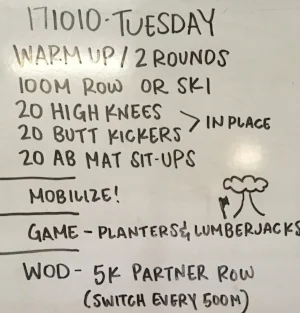 171010-TUESDAY
WARM UP / 2 ROUNDS
100M ROW OR SKI
20 HIGH KNEES
20 BUTT KICKERS > IN PLACE
20 AB MAT SIT-UPS
MOBILIZE!
GAME - PLANTERS & LUMBERJACKS
WOD - 5K PARTNER ROW
(SWITCH EVERY 500M)